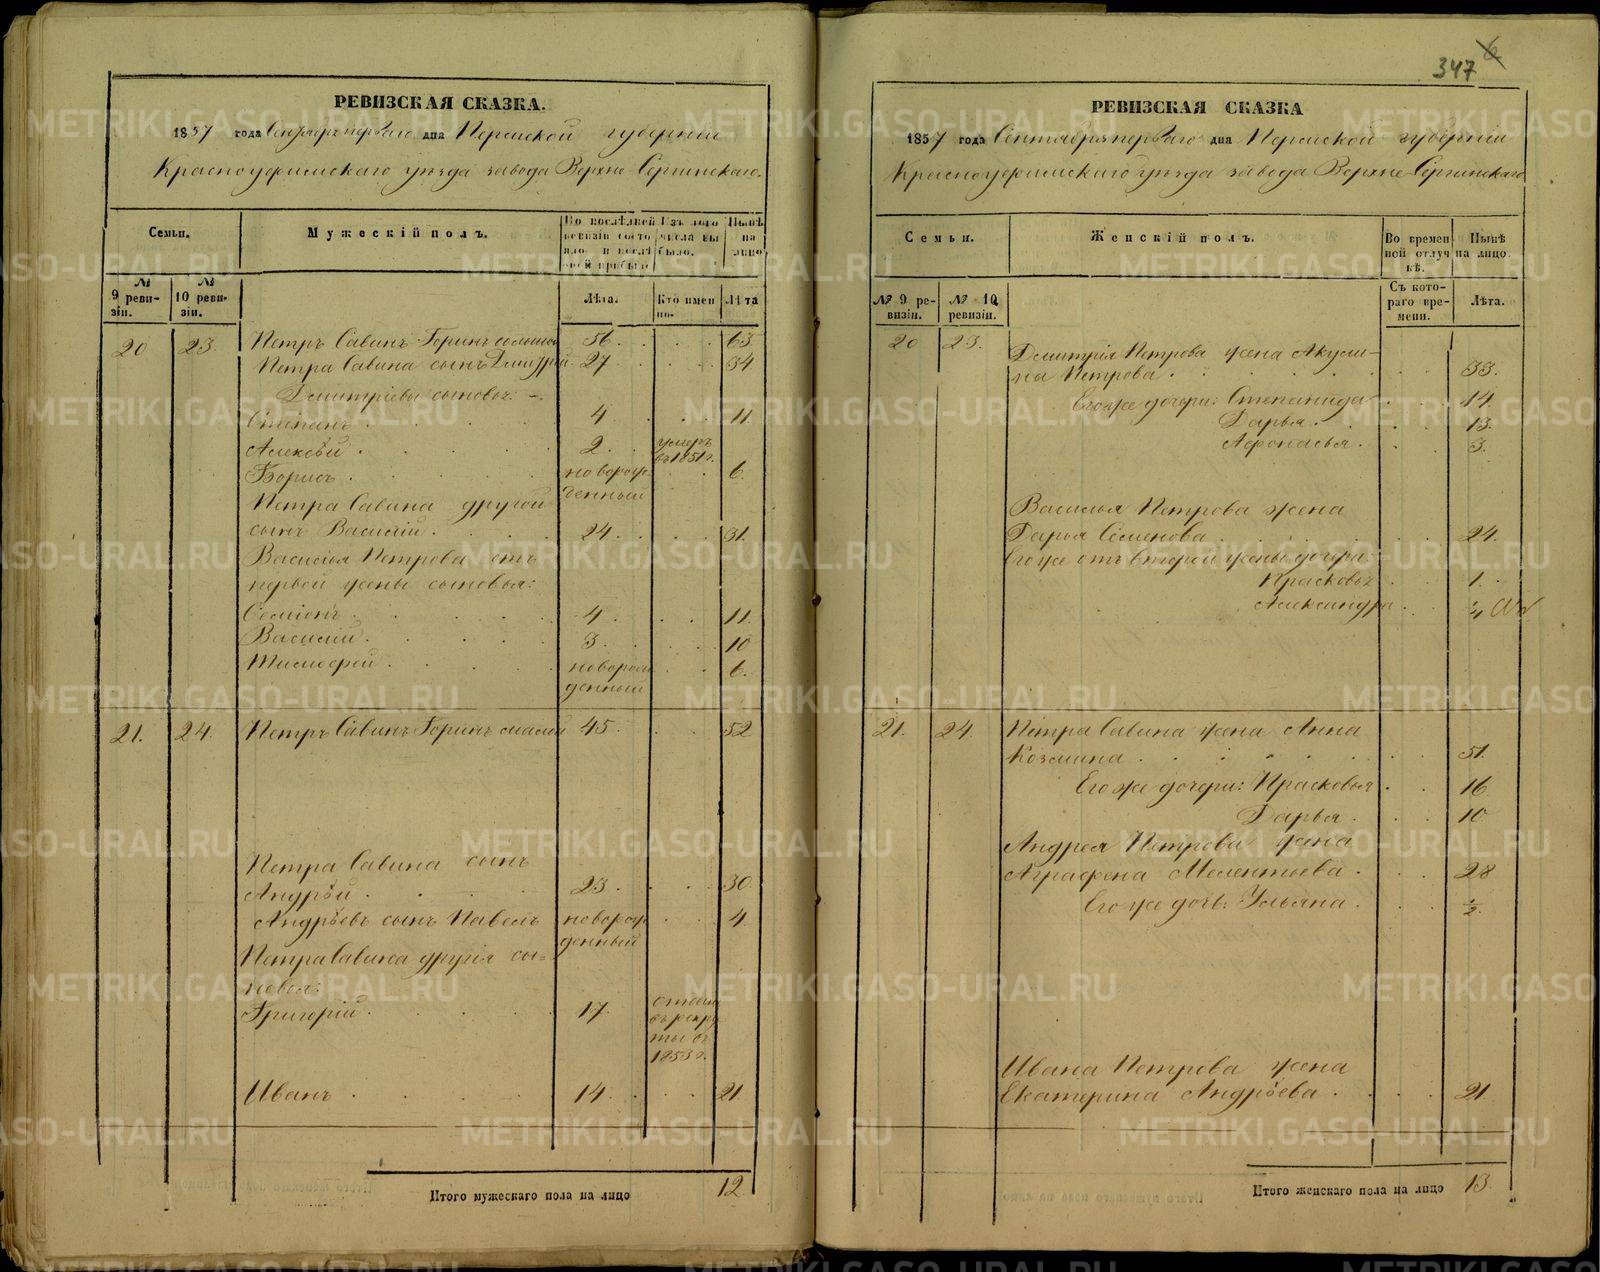 РЕВИЗСКАЯ СКАЗКА.
1857 года Сентября перваго дня Пермской губернiи
Красноуфимскаго уѣзда завода Верхне-Сергинскаго.
Семьи.
Мужескiй полъ.
По послѣдней ревизiи состояло и послѣ оной прибыло
Изъ того числа выбыло.
Нынѣ на лицо
№ 9 ревизiи.
№ 10 ревизiи.
Лѣта.
Кто именно.
Лѣта
20 23. Петръ Савинъ Горинъ большой 56 63
Петра Савина сынъ Дмитрiй 27 34
Дмитрiевы сыновья:
Степанъ 4 11
Алексѣй 2 умеръ въ 1851 г.
Борисъ новорожденный 6
Петра Савина другой
сынъ Василiй 24 31
Василья Петрова отъ
первой жены сыновья:
Семіонъ 4 11
Василiй 3 10
Тимофей новорожденный 6
21. 24. Петръ Савинъ Горинъ малый 45 52
Петра Савина сынъ
Андрѣй 23 30
Андрѣевъ сынъ Павелъ новорожденный 4
Петра Савина другiя сыновья:
Григорiй 17 отданъ въ рекруты въ 1853 г.
Иванъ 14 21
Итого мужескаго пола на лицо 12
347
6
РЕВИЗСКАЯ СКАЗКА
1857 года Сентября перваго дня Пермской губернiи
Красноуфимскаго уѣзда завода Верхне-Сергинскаго
Семьи.
Женскiй полъ.
Во временной отлучкѣ.
Нынѣ на лицо.
№ 9 ревизiи.
№ 10 ревизiи.
Съ котораго времени.
Лѣта.
20 23. Дмитрiя Петрова жена Акули-
на Петрова 33
Его же дочери: Степанида 14
Дарья 13
Афонасья 3
Василья Петрова жена
Дарья Семенова 24
Его же отъ второй жены дочери:
Прасковья 1
Александра 1/4
21. 24. Петра Савина жена Анна
Козмина 51
Его же дочери: Прасковья 16
Дарья 10
Андрея Петрова жена
Аграфена Мелентьева 28
Его же дочь: Ульяна 1/2
Ивана Петрова жена
Екатерина Андрѣева 21
Итого женскаго пола на лицо 13
METRIKI.GASO-URAL.RU